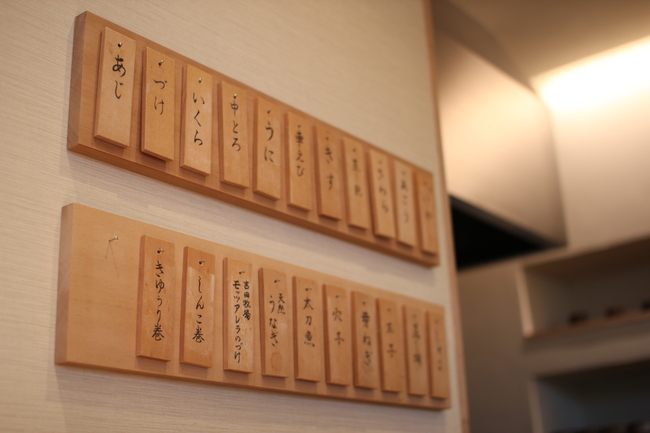 あじ
づけ
いくら
中とろ
うに
車えび
きす
さわら
あこう
きゅうり巻
しんこ巻
吉田牧場
モッツアレラのづけ
天然
うなぎ
太刀魚
穴子
芽ねぎ
玉子